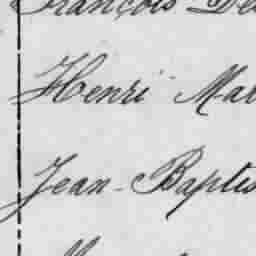 François De
Henri Mar
Jean-Baptis